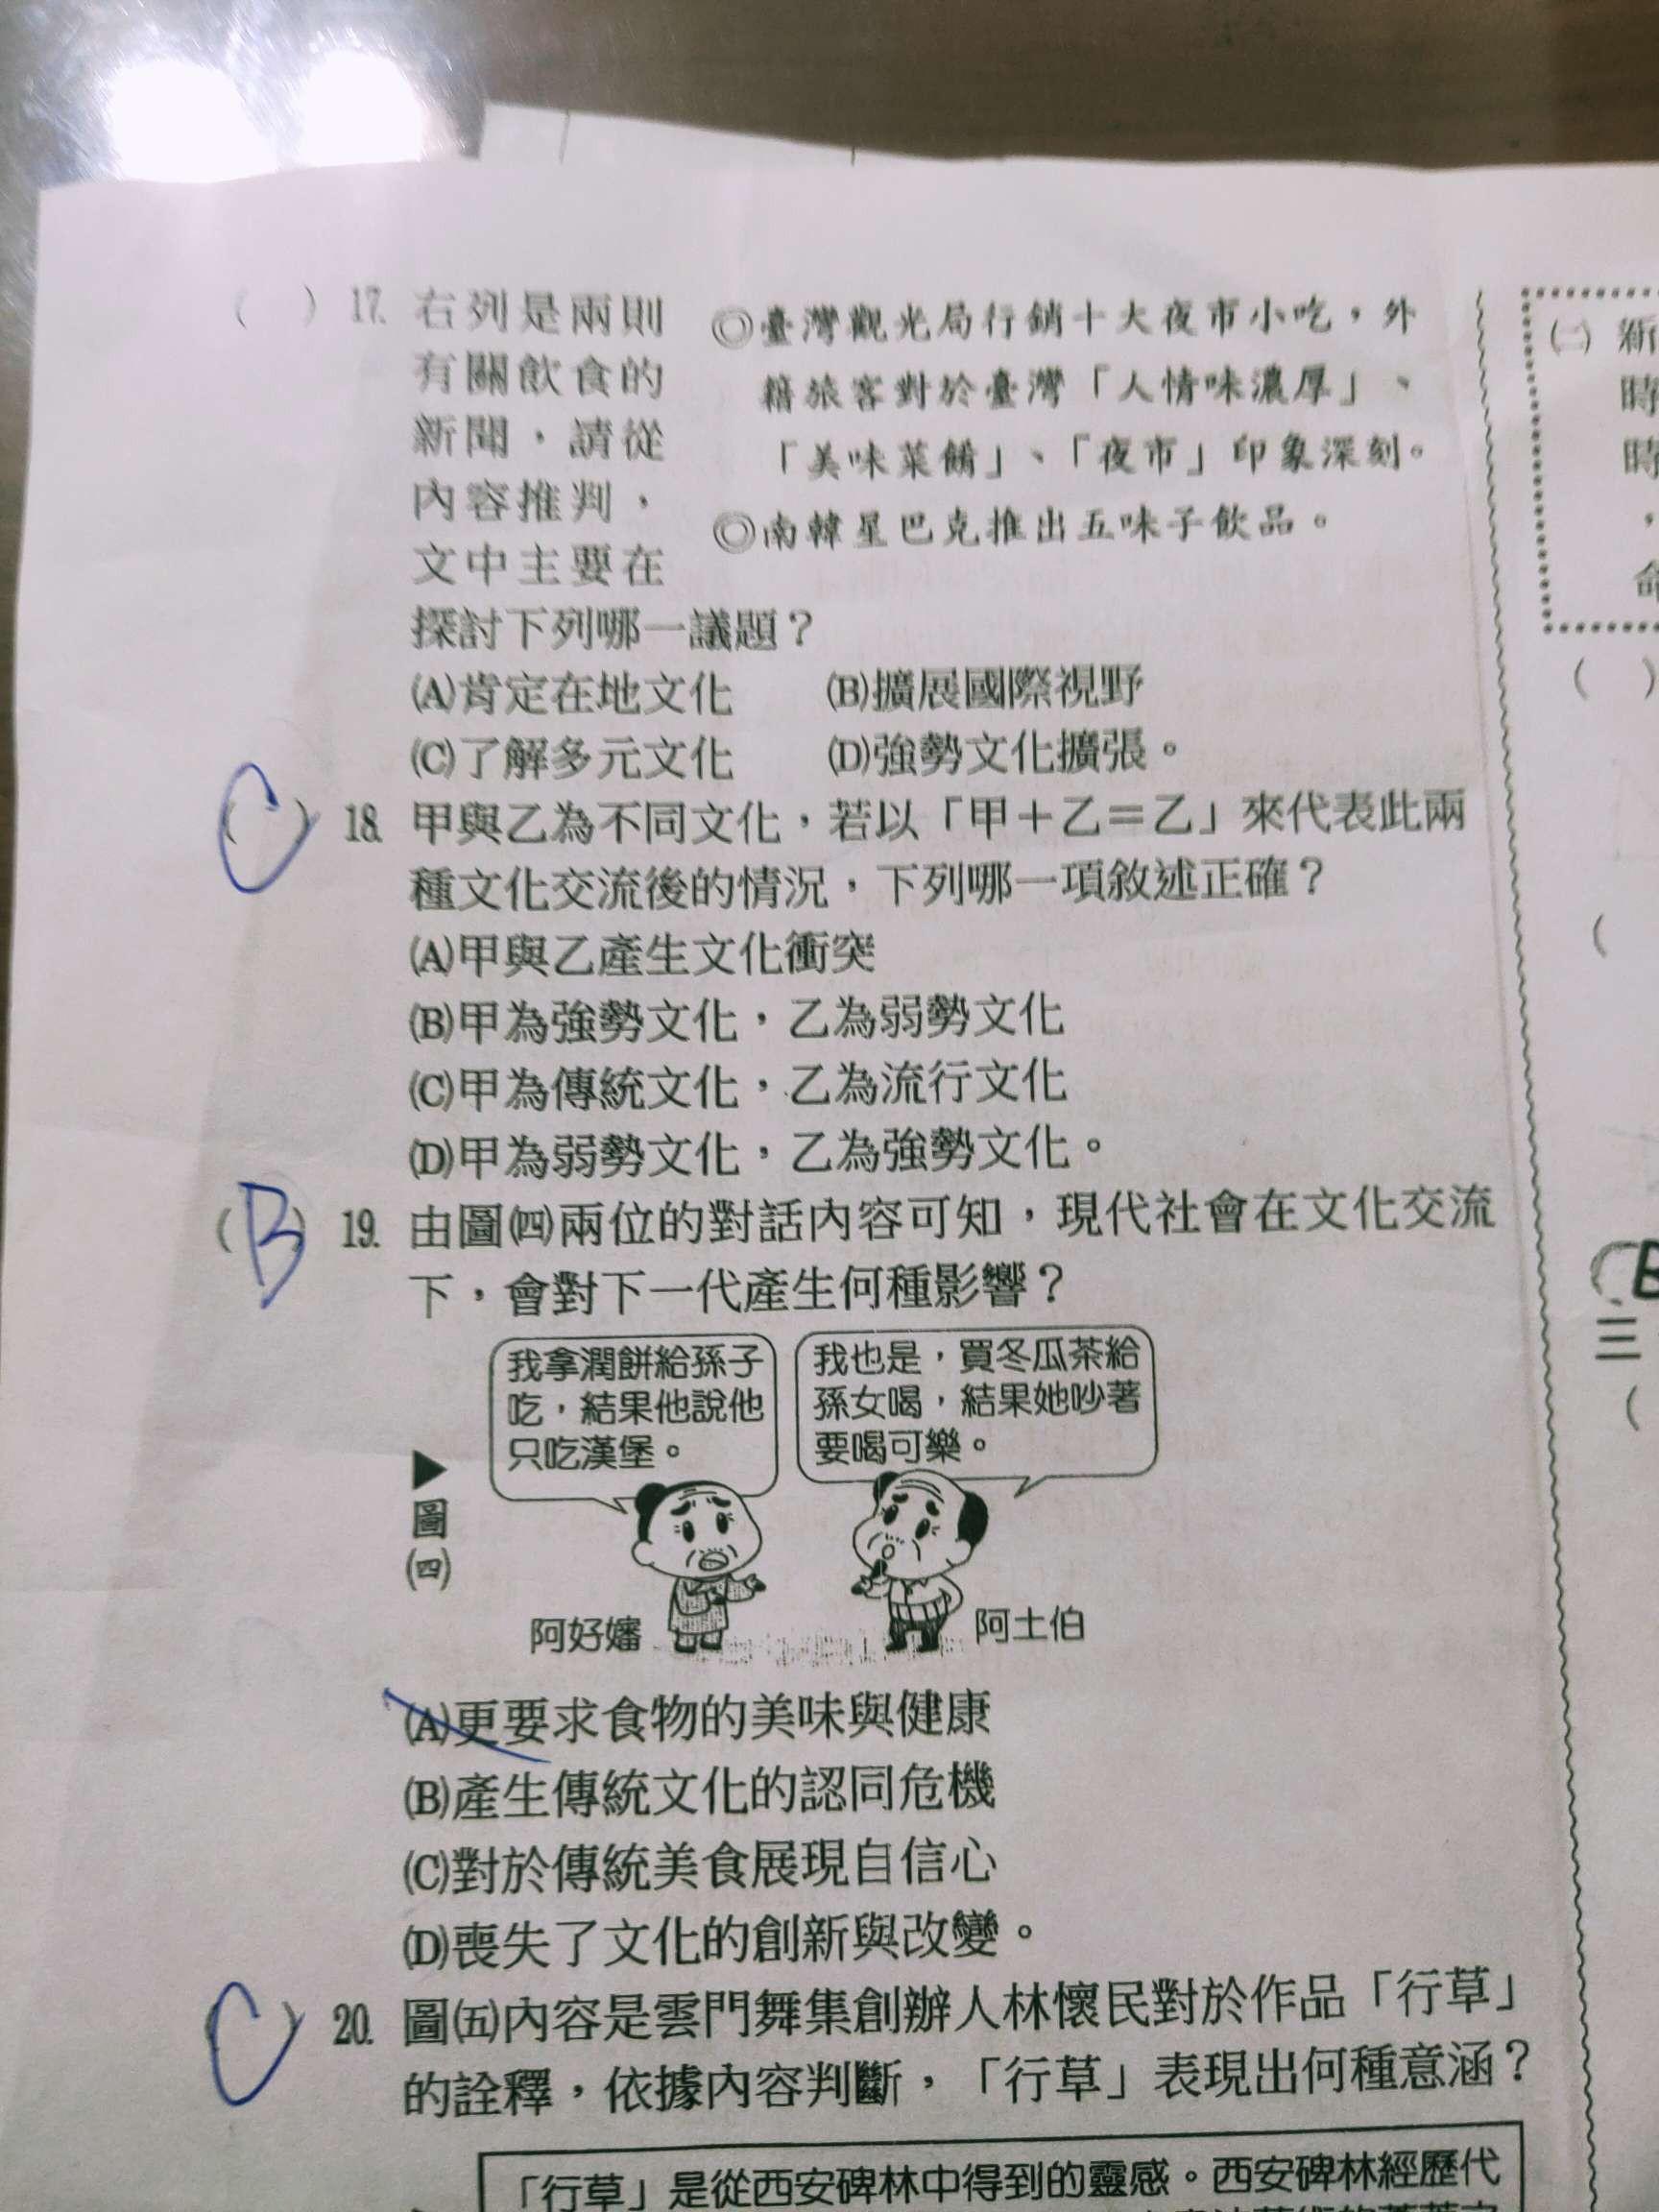 ( ) 17. 右列是兩則
有關飲食的
新聞，請從
內容推判，
文中主要在
探討下列哪一議題？
◎臺灣觀光局行銷十大夜市小吃，外
籍旅客對於臺灣「人情味濃厚」、
「美味菜餚」、「夜市」印象深刻。
◎南韓星巴克推出五味子飲品。
(A)肯定在地文化 (B)擴展國際視野
(C)了解多元文化 (D)強勢文化擴張。
(C) 18. 甲與乙為不同文化，若以「甲＋乙＝乙」來代表此兩
種文化交流後的情況，下列哪一項敘述正確？
(A)甲與乙產生文化衝突
(B)甲為強勢文化，乙為弱勢文化
(C)甲為傳統文化，乙為流行文化
(D)甲為弱勢文化，乙為強勢文化。
(B) 19. 由圖(四)兩位的對話內容可知，現代社會在文化交流
下，會對下一代產生何種影響？
我拿潤餅給孫子
吃，結果他說他
只吃漢堡。
我也是，買冬瓜茶給
孫女喝，結果她吵著
要喝可樂。
▶
圖
(四)
阿好嬸
阿土伯
(A)更要求食物的美味與健康
(B)產生傳統文化的認同危機
(C)對於傳統美食展現自信心
(D)喪失了文化的創新與改變。
(C) 20. 圖(五)內容是雲門舞集創辦人林懷民對於作品「行草」
的詮釋，依據內容判斷，「行草」表現出何種意涵？
「行草」是從西安碑林中得到的靈感。西安碑林經歷代
(二) 新
時
時
，
命
( )
(
(B
三
(